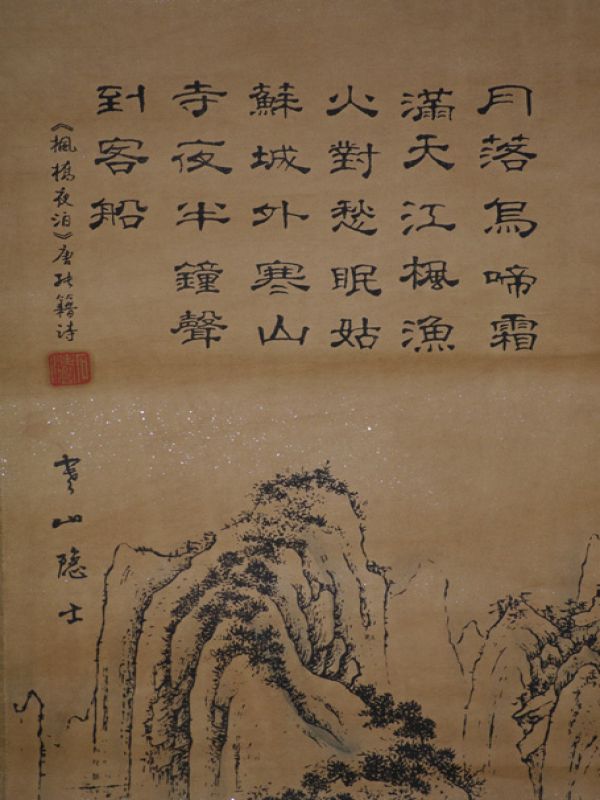 月落烏啼霜
滿天江楓漁
火對愁眠姑
蘇城外寒山
寺夜半鐘聲
到客船
《楓橋夜泊》唐张籍诗
寒山隐士